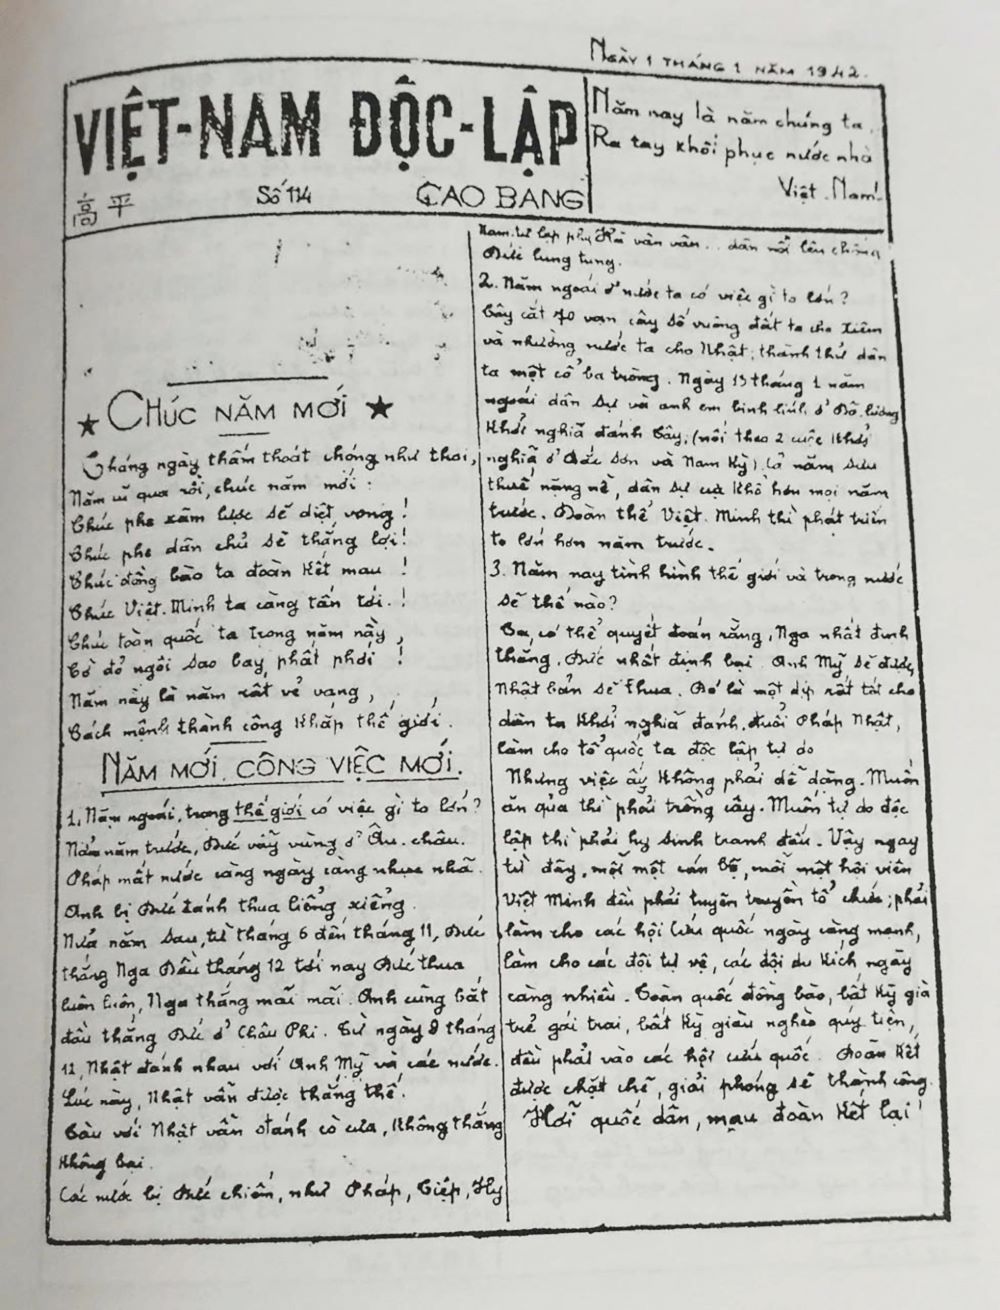 NGÀY 1 THÁNG 1 NĂM 1942.
VIỆT-NAM ĐỘC-LẬP
高平
Số 114
CAO BANG
Năm nay là năm chúng ta
Ra tay khôi phục nước nhà
Việt-Nam!
★ CHÚC NĂM MỚI ★
Tháng ngày thấm thoát chóng như thoi,
Năm cũ qua rồi, chúc năm mới:
Chúc phe xâm lược sẽ diệt vong!
Chúc phe dân chủ sẽ thắng lợi!
Chúc đồng bào ta đoàn kết mau!
Chúc Việt-Minh ta càng tấn tới!
Chúc toàn quốc ta trong năm này,
Cờ đỏ ngôi sao bay phất phới!
Năm này là năm rất vẻ vang,
Cách mệnh thành công khắp thế giới.
NĂM MỚI, CÔNG VIỆC MỚI.
1. Năm ngoái, trong thế giới có việc gì to lớn?
Nửa năm trước, Đức vẫy vùng ở Âu-châu.
Pháp mất nước càng ngày càng nhục nhã.
Anh bị Đức đánh thua liểng xiểng.
Nửa năm sau, từ tháng 6 đến tháng 11, Đức
thắng Nga. Đầu tháng 12 tới nay Đức thua
luôn luôn, Nga thắng mãi mãi. Anh cũng bắt
đầu thắng Đức ở Châu Phi. Từ ngày 8 tháng
12, Nhật đánh nhau với Anh Mỹ và các nước.
Lúc này, Nhật vẫn được thắng thế.
Tàu với Nhật vẫn đánh cò cưa, không thắng
không bại.
Các nước bị Đức chiếm, như Pháp, Tiệp, Hy
Nam-tư lạp phu, Hà vân vân... dân nổi lên chống
Đức lung tung.
2. Năm ngoái ở nước ta có việc gì to lớn?
Tây cắt 70 vạn cây số vuông đất ta cho Xiêm
và nhường nước ta cho Nhật; thành thử dân
ta một cổ ba tròng. Ngày 13 tháng 1 năm
ngoái dân sự và anh em binh lính ở Đô-lương
khởi nghĩa đánh Tây, (nối theo 2 cuộc khởi
nghĩa ở Bắc Sơn và Nam Kỳ). Cả năm sưu
thuế nặng nề, dân sự cực khổ hơn mọi năm
trước. Đoàn thể Việt-Minh thì phát triển
to lớn hơn năm trước.
3. Năm nay tình hình thế giới và trong nước
sẽ thế nào?
Ta có thể quyết đoán rằng, Nga nhất định
thắng, Đức nhất định bại. Anh Mỹ sẽ được,
Nhật bản sẽ thua. Đó là một dịp rất tốt cho
dân ta khởi nghĩa đánh đuổi Pháp Nhật,
làm cho tổ quốc ta độc lập tự do
Nhưng việc ấy không phải dễ dàng. Muốn
ăn quả thì phải trồng cây. Muốn tự do độc
lập thì phải hy sinh tranh đấu. Vậy ngay
từ đây, mỗi một cán bộ, mỗi một hội viên
Việt Minh đều phải tuyên truyền tổ chức; phải
làm cho các hội Cứu quốc ngày càng mạnh,
làm cho các đội tự vệ, các đội du kích ngày
càng nhiều. Toàn quốc đồng bào, bất kỳ già
trẻ gái trai, bất kỳ giàu nghèo quý tiện,
đều phải vào các hội cứu quốc. Đoàn kết
được chặt chẽ, giải phóng sẽ thành công.
Hỡi quốc dân, mau đoàn kết lại!